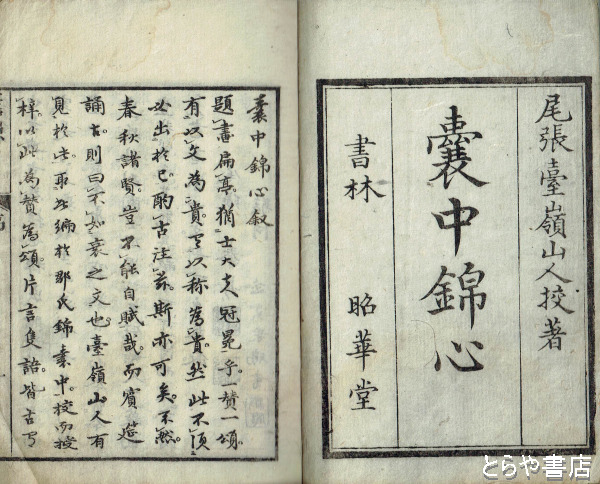 尾張臺嶺山人挍著
囊中錦心
書林 昭華堂
囊中錦心叙
題畫扁亭猶士大夫冠冕乎一贊一頌
有以文為貴者以称為貴然此不須
必出於已酌古注芥斯亦可矣不然
春秋諸賢豈不能自賦哉而賓筵
誦古則曰不如衰之文也臺嶺山人有
見於此取此編於郡氏錦囊中挍而授
梓以此為贊為頌片言隻語皆古
とらや書店